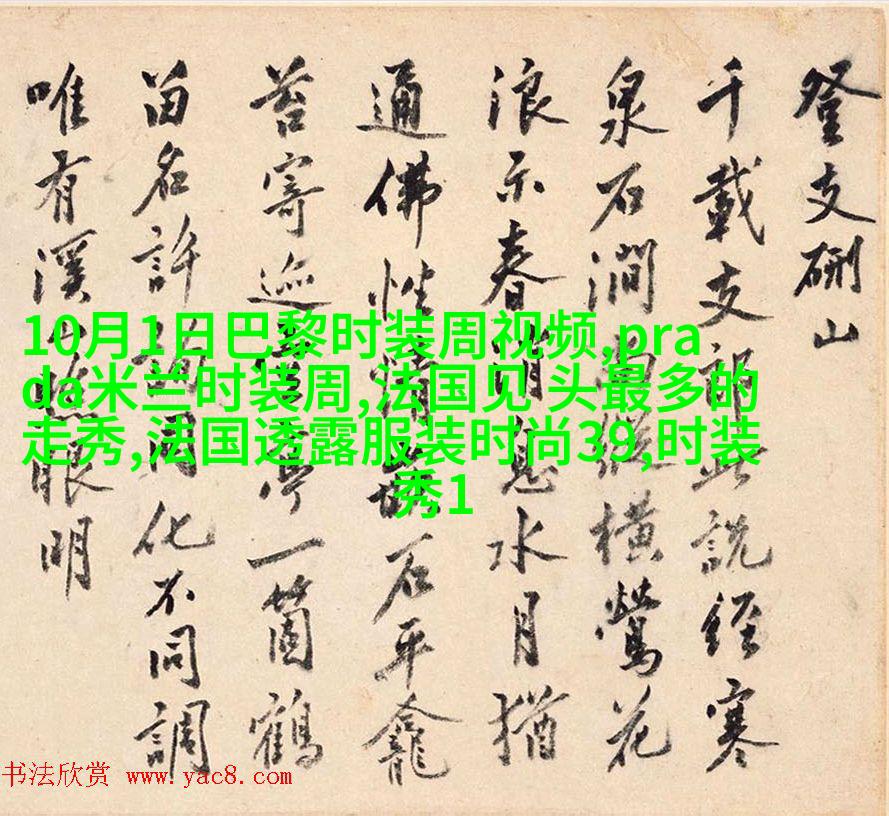 登支硎山
千載支郎此說經寒
泉石澗尚縱橫鶯花
浪示春消息水月猶
通佛性情石平龕
苔寄亭一箇鶴
留名許詢同化不同調
唯有溪山照眼明
10月1日巴黎时装周视频,pra
da米兰时装周,法国见 头最多的
走秀,法国透露服装时尚39,时装
秀1
书法欣赏 www.yac8.com